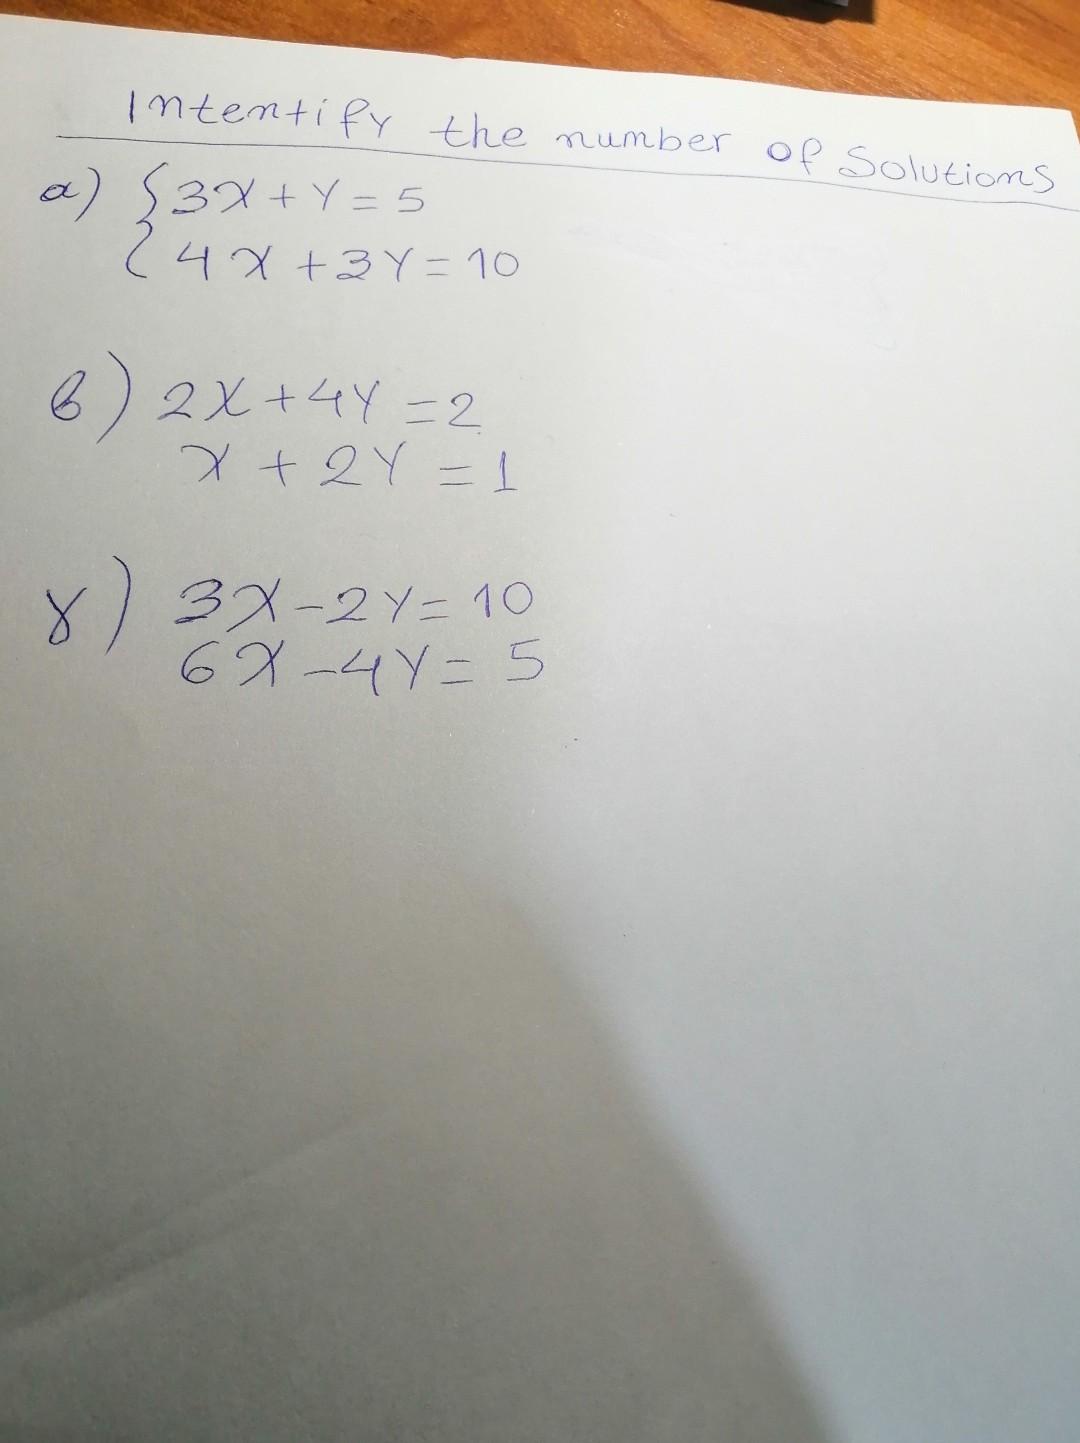 Intentify the number of Solutions
α) {3x+y=5
4x+3y=10
β) 2x+4y=2
x+2y=1
γ) 3x-2y=10
6x-4y=5